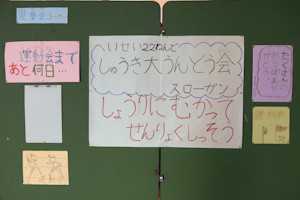 児童会コーナー
運動会まで
あと何日…
へいせい22ねんど
しゅうき大うんどう会
スローガン
しょうりにむかって
ぜんりょくしっそう